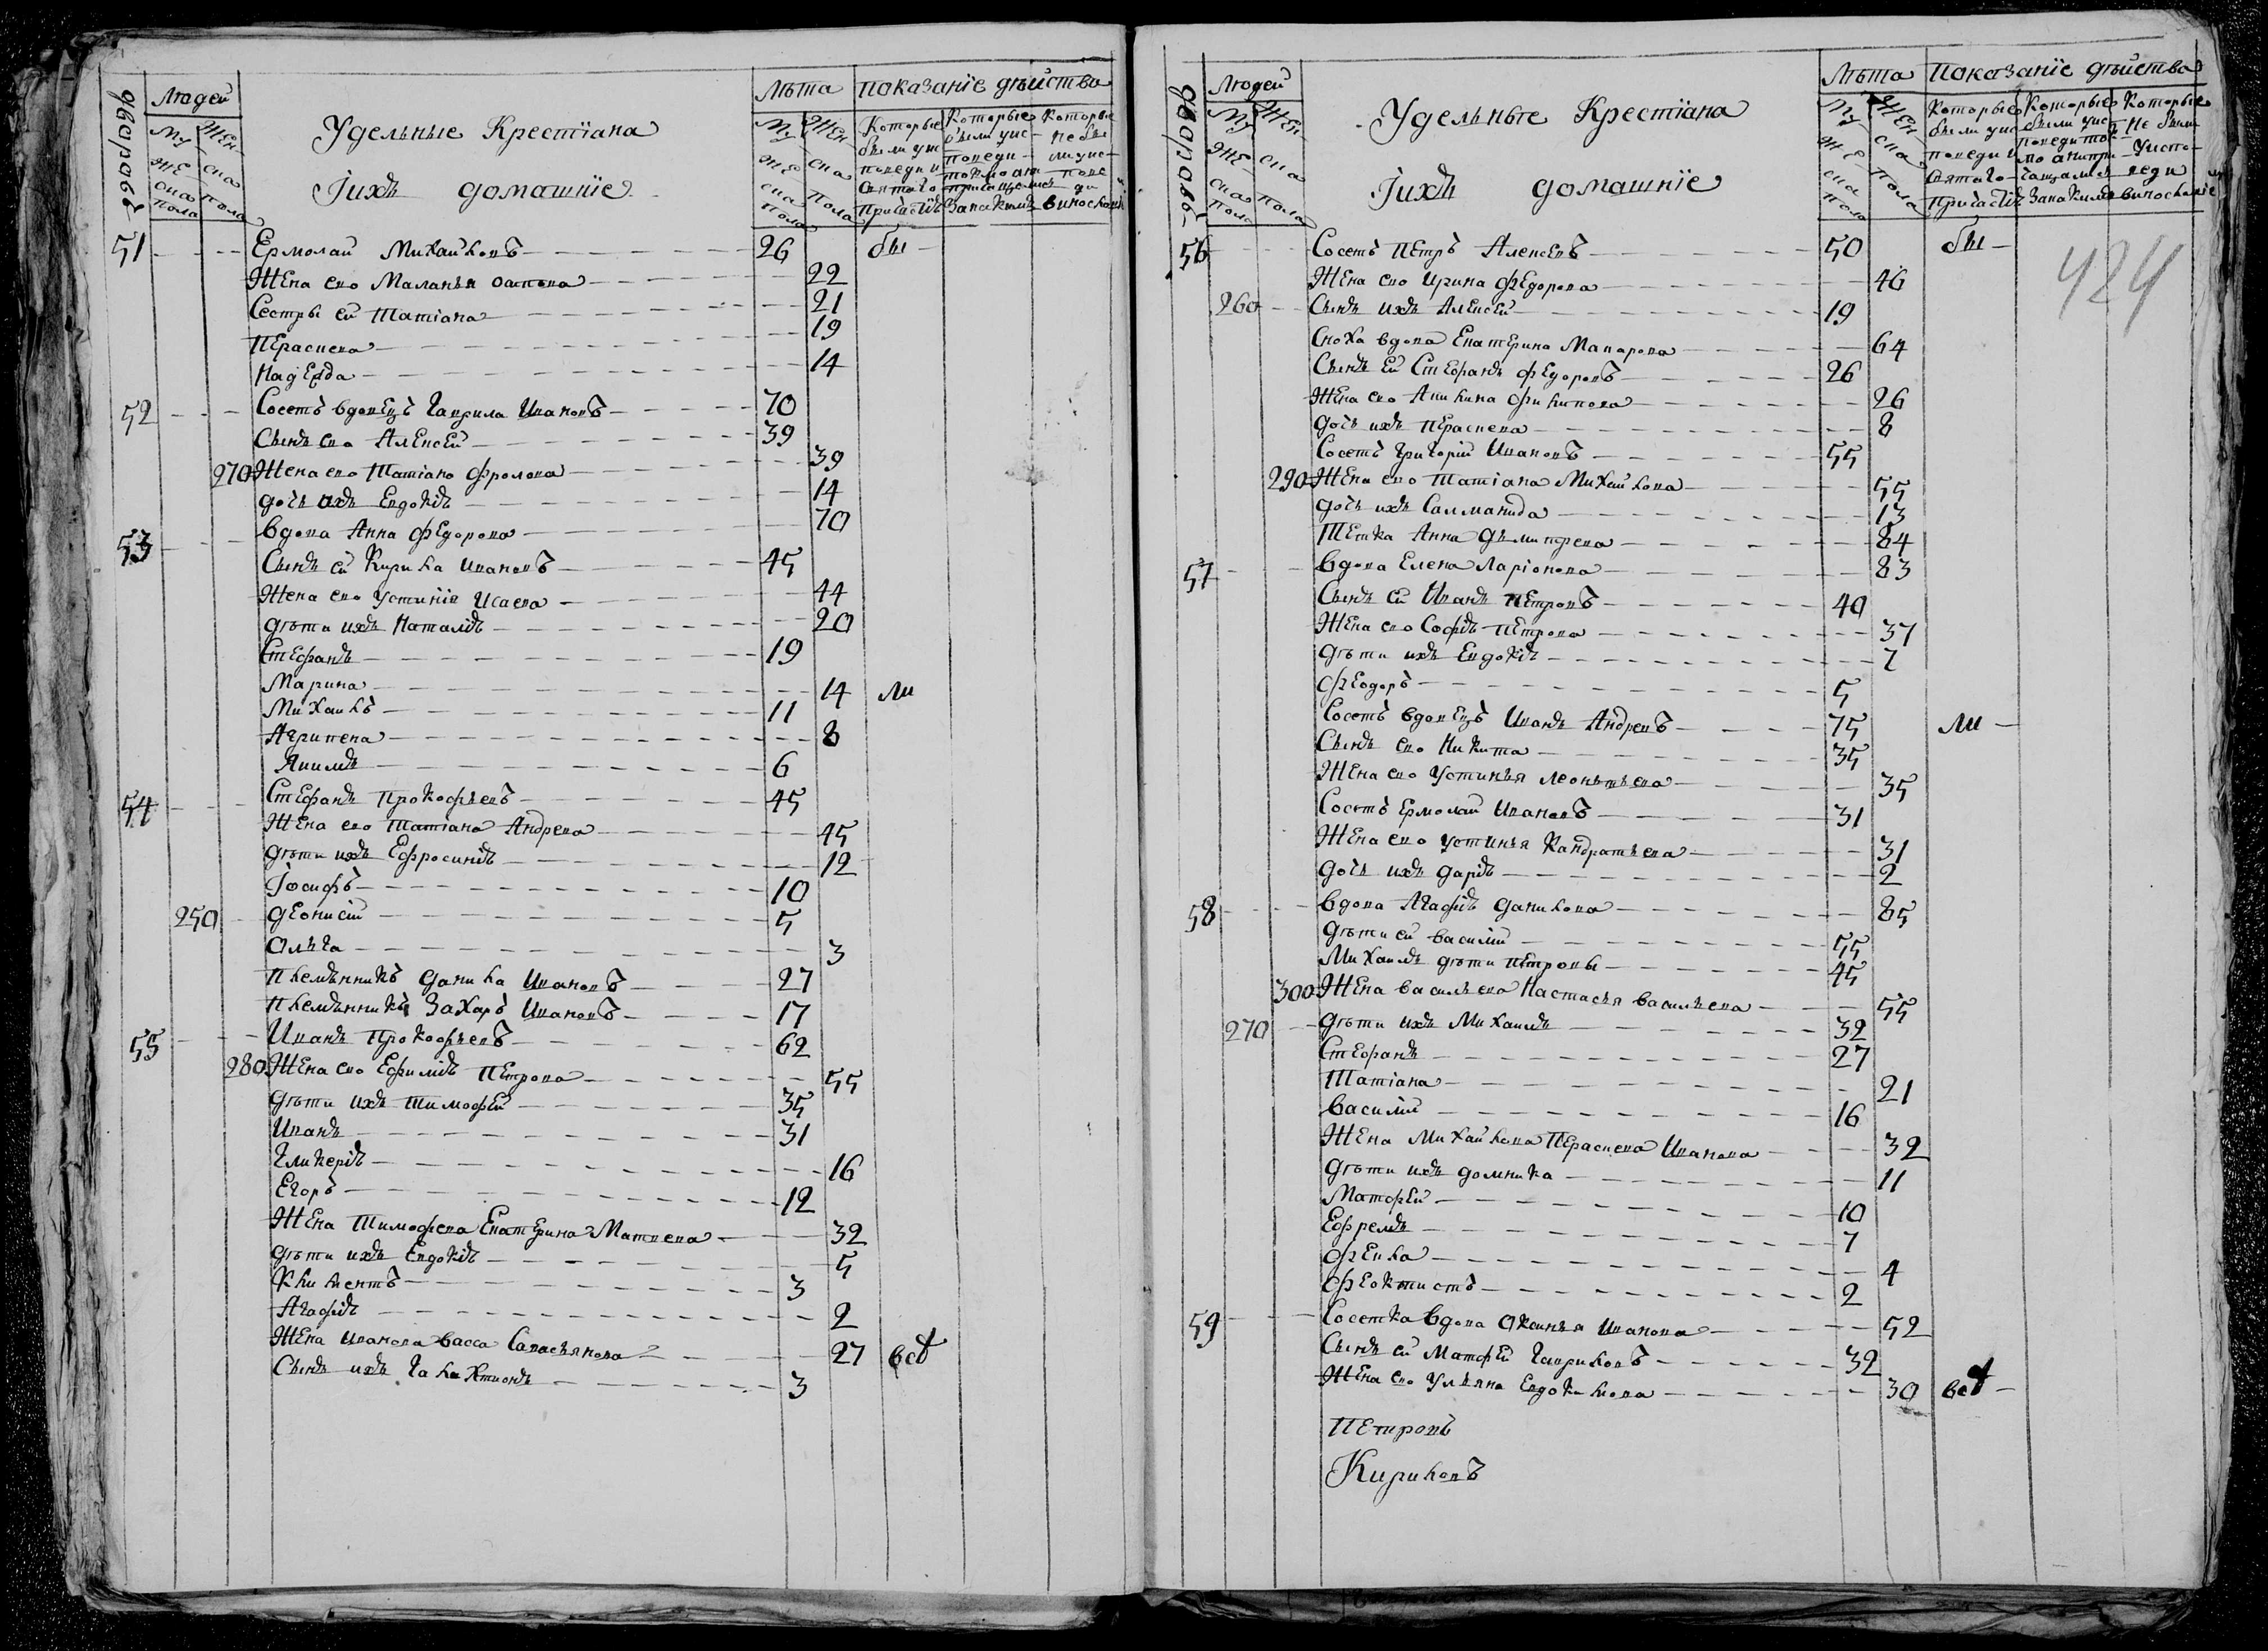 дворовъ
Людей
Мужеска пола
Женска пола
Удельные Крестіяна
Іихъ домашніе
Лѣта
Мужеска пола
Женска пола
показаніе дѣйства
Которые были у исповеди и святаго причастія
Которые были у исповеди токмо а не причащались
Которые не были у исповеди
51 Ермолаи Михайловъ 26 бы
Жена ево Маланья 22
Сестры ей Татіана 21
Пераскева 19
Надежда 14
52 Сосетъ вдовецъ Гаврила Ивановъ 70
Сынъ ево Алексей 39
270 Жена ево Татіана Фролова 39
дочь ихъ Евдокія 14
53 вдова Анна Федорова 70
Сынъ ей Кирила Ивановъ 45
Жена ево Устинія Исаева 44
дѣти ихъ Наталія 20
Стефанъ 19
Марина 14 ли
Михаилъ 11
Агрипена 8
Якимъ 6
54 Стефанъ Прокофьевъ 45
Жена ево Татіана Андрева 45
дѣти ихъ Ефросинія 12
Іосифъ 10
250 деонисій 5
Ольга 3
племянникъ данила Ивановъ 27
племянникъ Захаръ Ивановъ 17
55 Иванъ Прокофьевъ 62
280 Жена ево Ефимія Петрова 55
дѣти ихъ Тимофей 35
Иванъ 31
Гликерія 16
Егоръ 12
Жена Тимофева Екатерина Матвева 32
дѣти ихъ Евдокія 5
Климентъ 3
Агафія 2
Жена Иванова васса Савасьянова 27 всѣ
Сынъ ихъ Галахтионъ 3
дворовъ
Людей
Мужеска пола
Женска пола
Удельные Крестіяна
Іихъ домашніе
Лѣта
Мужеска пола
Женска пола
показаніе дѣйства
Которые были у исповеди и святаго причастія
Которые были у исповеди токмо а не причащались
Которые не были у исповеди
424
56 Сосетъ Петръ Алексевъ 50 бы
Жена ево Ирина Федорова 46
260 Сынъ ихъ Алексей 19
Сноха вдова Екатерина Макарова 64
Сынъ ей Стефанъ Федоровъ 26
Жена ево Акилина Филипова 26
дочь ихъ Пераскева 8
Сосетъ Григорій Ивановъ 55
290 Жена ево Татіана Михайлова 55
дочь ихъ Салманида 13
Тетка Анна дѣмитрева 84
57 вдова Елена Ларіонова 83
Сынъ ей Иванъ Петровъ 40
Жена ево Софія Петрова 37
дѣти ихъ Евдокія 7
Феодоръ 5
Сосетъ вдовецъ Иванъ Андревъ 75 ли
Сынъ ево Никита 35
Жена ево Устинья Леонтьева 35
Сосетъ Ермолаи Ивановъ 31
Жена ево Устинья Кандратьева 31
дочь ихъ дарія 2
58 вдова Агафія данилова 85
дѣти ей василій 55
Михаилъ дѣти Петровы 45
300 Жена васильева Настасья васильева 55
270 дѣти ихъ Михаилъ 32
Стефанъ 27
Татіана 21
василій 16
Жена Михайлова Пераскева Иванова 32
дѣти ихъ домника 11
Матфей 10
Ефремъ 7
Фекла 4
Феоктистъ 2
59 Сосетка вдова Оксинья Иванова 52
Сынъ ей Матфей Гавриловъ 32
Жена ево Ульяна Евдокимова 30 всѣ
Петровъ
Кириловъ